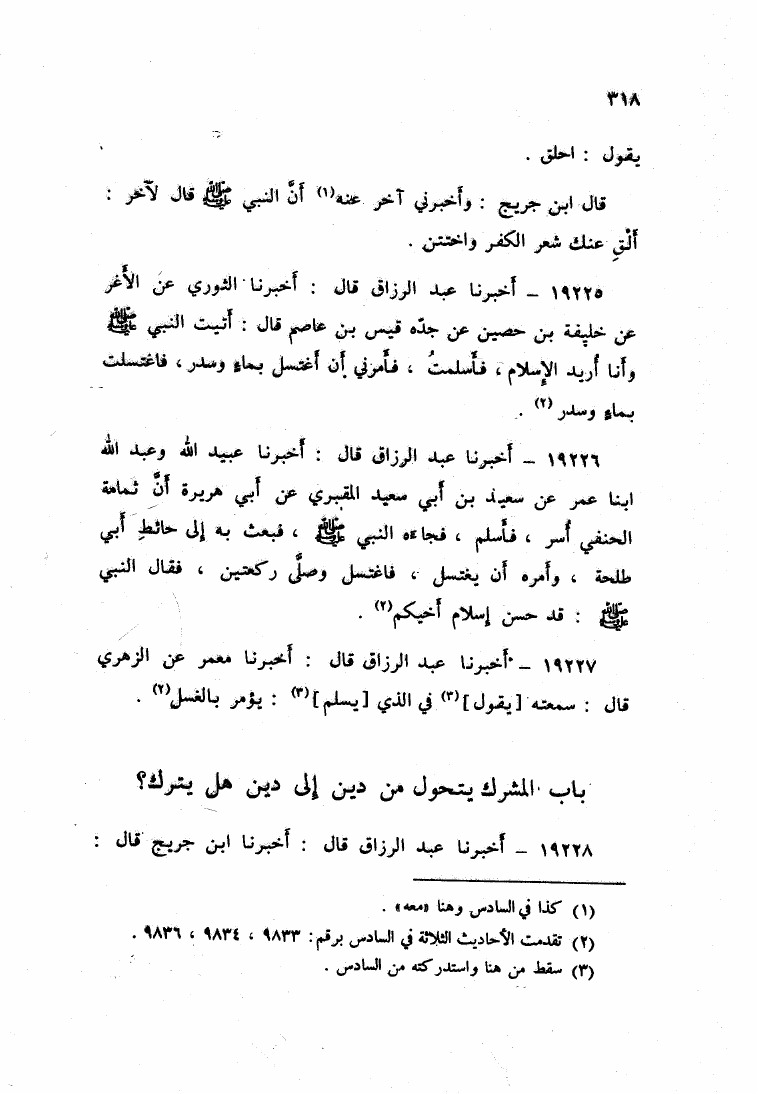 ٣١٨
يقول : احلق .
قال ابن جريج : وأخبرني آخر عنه(١) أنَّ النبي ﷺ قال لآخر :
ألْقِ عنك شعر الكفر واختتن .
١٩٢٢٥ – أخبرنا عبد الرزاق قال : أخبرنا الثوري عن الأغر
عن خليفة بن حصين عن جدّه قيس بن عاصم قال : أتيت النبي ﷺ
وأنا أُريد الإسلام ، فأسلمتُ ، فأمرني أن أغتسل بماء وسدر ، فاغتسلت
بماء وسدر (٢) .
١٩٢٢٦ – أخبرنا عبد الرزاق قال : أخبرنا عبيد الله وعبد الله
ابنا عمر عن سعيد بن أبي سعيد المقبري عن أبي هريرة أنَّ ثمامة
الحنفي أُسر ، فأسلم ، فجاءه النبي ﷺ ، فبعث به إلى حائطِ أبي
طلحة ، وأمره أن يغتسل ، فاغتسل وصلَّى ركعتين ، فقال النبي
ﷺ : قد حسن إسلام أخيكم(٢) .
١٩٢٢٧ – أخبرنا عبد الرزاق قال : أخبرنا معمر عن الزهري
قال : سمعته [يقول](٣) في الذي [يسلم](٣) : يؤمر بالغسل(٢) .
باب المشرك يتحول من دين إلى دين هل يترك؟
١٩٢٢٨ – أخبرنا عبد الرزاق قال : أخبرنا ابن جريج قال :
(١) كذا في السادس وهنا «معه» .
(٢) تقدمت الأحاديث الثلاثة في السادس برقم: ٩٨٣٣ ، ٩٨٣٤ ، ٩٨٣٦ .
(٣) سقط من هنا واستدركته من السادس .